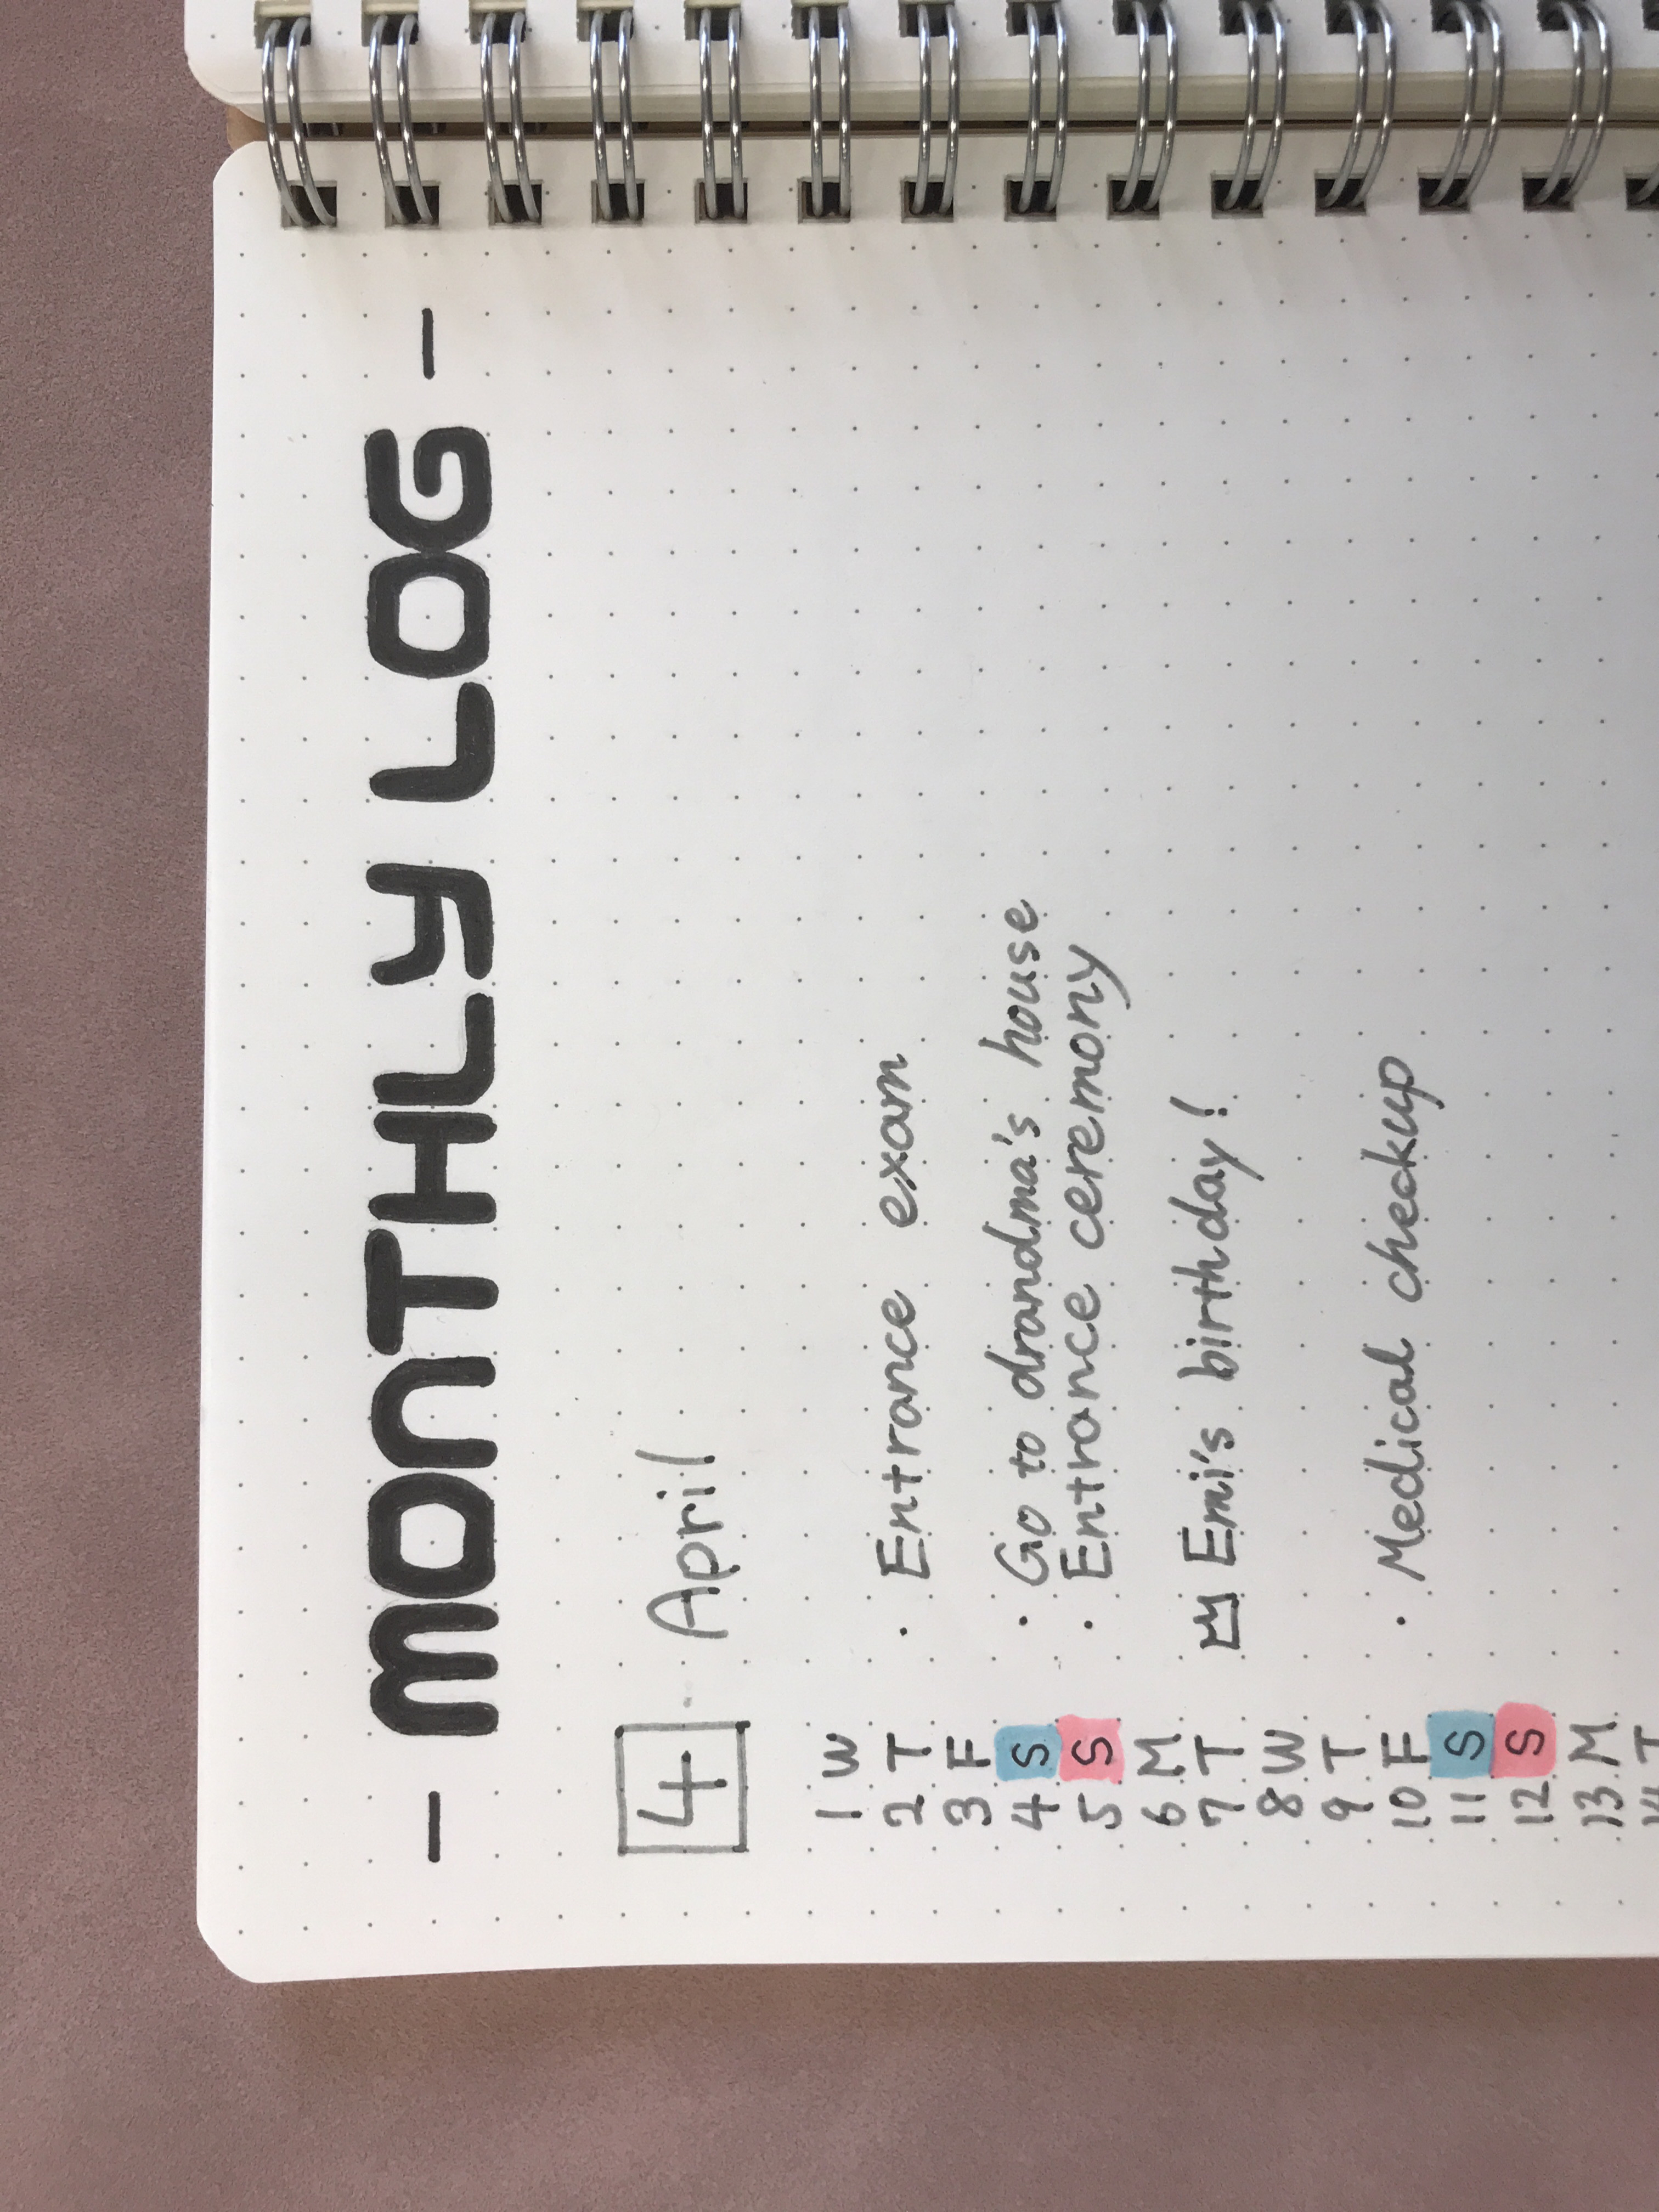 - MONTHLY LOG -
4 April
1 W
2 T · Entrance exam
3 F
4 S · Go to drandma's house
5 S · Entrance ceremony
6 M
7 T Emi's birthday!
8 W
9 T
10 F · Medical checkup
11 S
12 S
13 M
14 T